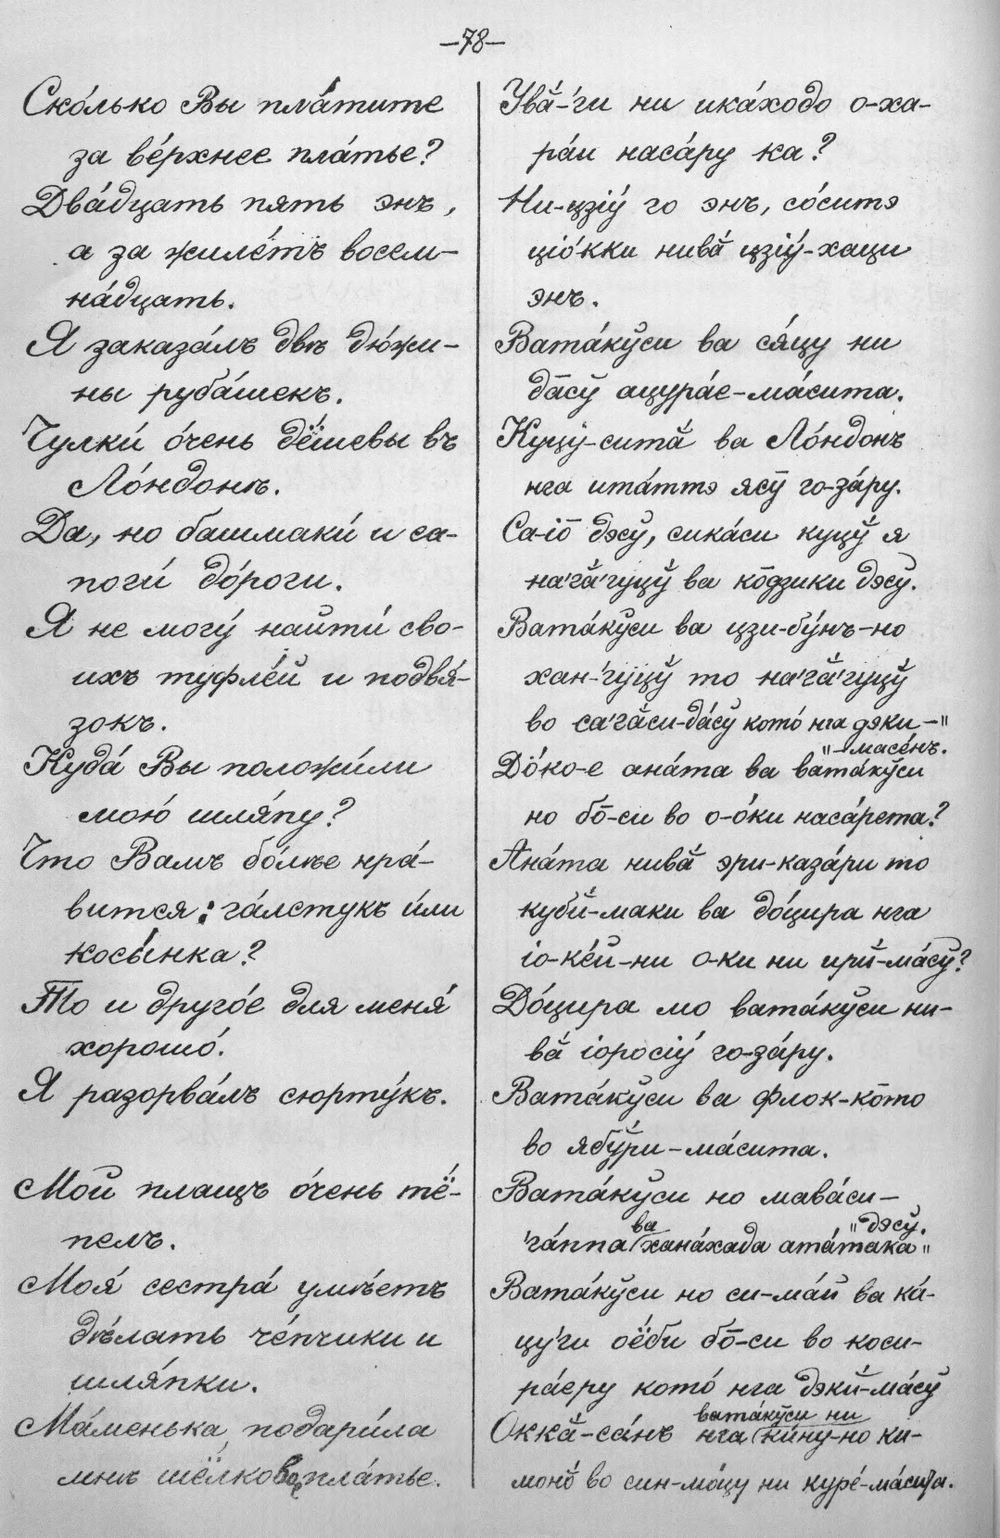 —78—
Ско́лько Вы пла́тите
за ве́рхнее пла́тье?
Два́дцать пять энъ,
а за жиле́тъ восем-
на́дцать.
Я заказа́лъ двѣ дю́жи-
ны руба́шекъ.
Чулки́ о́чень дёшевы въ
Ло́ндонѣ.
Да, но башмаки́ и са-
поги́ до́роги.
Я не могу́ найти́ сво-
ихъ туфле́й и подвя́-
зокъ.
Куда́ Вы положи́ли
мою́ шля́пу?
Что Вамъ бо́лѣе нра́-
вится: га́лстукъ и́ли
косы́нка?
То и друго́е для меня́
хорошо́.
Я разорва́лъ сюрту́къ.
Мой плащъ о́чень тё-
пелъ.
Моя́ сестра́ умѣ́етъ
дѣ́лать че́пчики и
шля́пки.
Ма́менька подари́ла
мнѣ шёлковое пла́тье.
Увӑ-'ги ни ика́ходо о-ха-
ра́и наса́ру ка?
Ни-цзiӯ го энъ, со́ситэ
цiо́кки нивӑ цзiӯ-хаци
энъ.
Вата́кў̆си ва ся́цу ни
да̄сў ацура́е-ма́сита.
Куцў-ситӑ ва Ло́ндонъ
нга ита́ттэ ясў го-за́ру.
Са-iō дэсў, сика́си куцў я
на'гӑ'гуцў ва кōдзики дэсў.
Вата́кў̆си ва цзи-бу́нъ-но
хан-'гуцў то на'гӑ'гуцў
во са'гӑси-да́сў кото́ нга дэки-"
"-масе́нъ.
До́ко-е ана́та ва вата́кў̆си
но бō-си во о-о́ки наса́рета?
Ана́та нивӑ эри-каза́ри то
кубй-маки ва до́цира нга
iо-ке́й-ни о-ки ни ирй-ма́сў?
До́цира мо вата́кў̆си ни-
вӑ iоросiӯ го-за́ру.
Вата́кў̆си ва флок-кōто
во ябў̆ри-ма́сита.
Вата́кў̆си но мава́си-
'га́ппа ва хана́хада ата́така"
"-дэсў.
Вата́кў̆си но си-ма́й ва ка́-
цу'ги оё̆би бō-си во коси-
ра́еру кото́ нга дэкй-ма́сў
Оккӑ-са́нъ нга вата́кў̆си ни ки́ну-но ки-
моно̆ во син-мо́цу ни куре́-ма́сита.